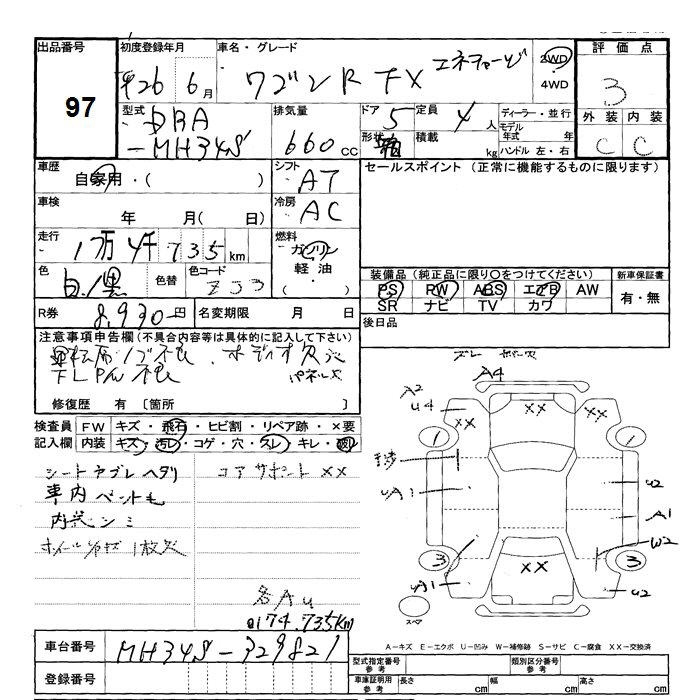 出品番号
97
初度登録年月
H26年 6月
車名・グレード
ワゴンR FX エネチャージ
2WD
4WD
評価点
3
型式
DBA
-MH34S
排気量
660cc
ドア 5
定員 4人
形状
積載 kg
ディーラー・並行
モデル年式 年
ハンドル 左・右
外装 内装
C C
車歴
自家用・( )
シフト
AT
車検
年 月( 日)
冷房
AC
セールスポイント (正常に機能するものに限ります)
走行
1万4千735km
燃料
ガソリン
軽油
・( )
色
白/黒
色替
色コード
ZJ3
装備品 (純正品に限り○をつけてください)
PS RW ABS エアB AW
SR ナビ TV カワ
新車保証書
有・無
R券
8,930円
名変期限 月 日
後日品
注意事項申告欄 (不具合内容等は具体的に記入して下さい)
運転席ドア不良 オーディオ欠
パネル欠
修復歴 有 〔箇所 〕
検査員 FW キズ・飛石・ヒビ割・リペア跡・×要
記入欄 内装 キズ・汚レ・コゲ・穴・スレ・キレ・
シートヤブレ ヘタリ コアサポート XX
車内ペット毛
内装シミ
A4
A2
U4
XX
XX
1
1
UA1
U2
A1
W2
3
3
XX
UA1
U2
スペア
各AU
174,735km
A－キズ E－エクボ U－凹み W－補修跡 S－サビ C－腐食 XX－交換済
車台番号
MH34S-329821
登録番号
型式指定番号
参考
類別区分番号
参考
車庫証明用
参考
長さ cm
幅 cm
高さ cm